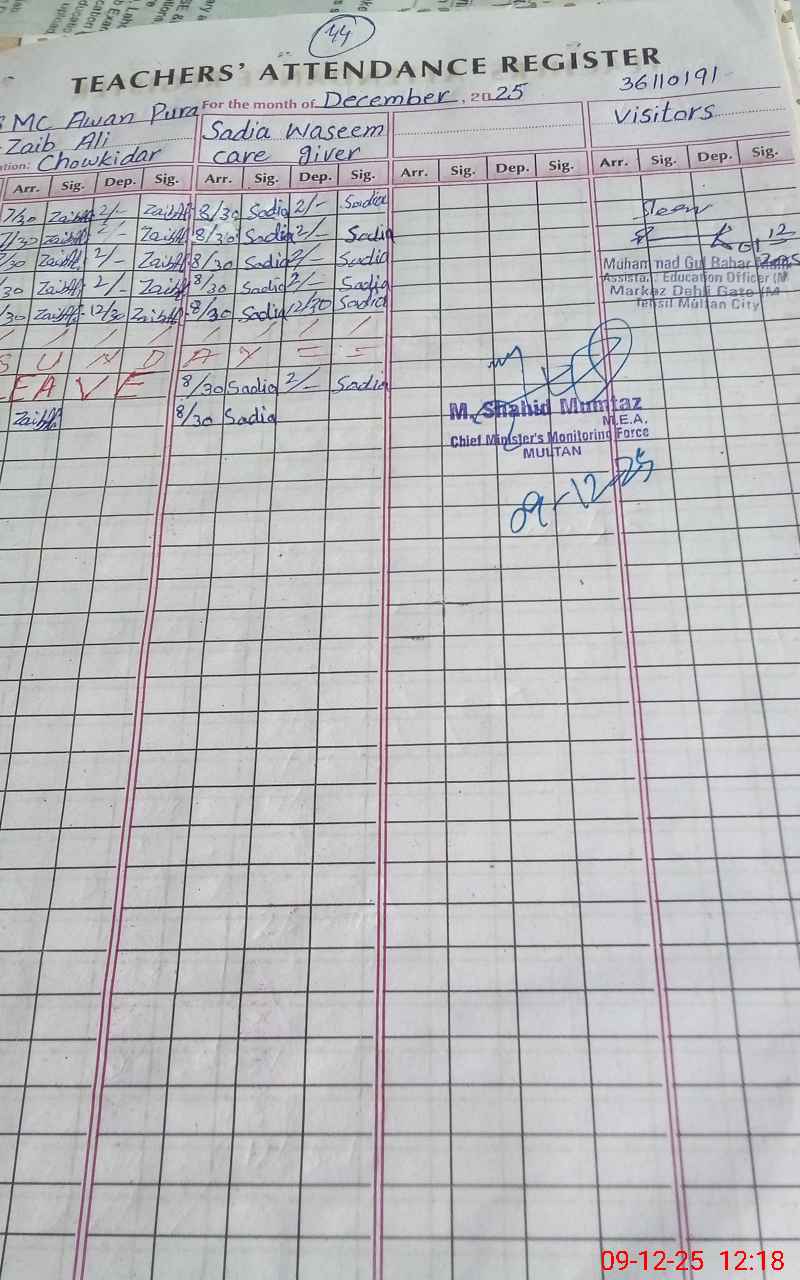 44
TEACHERS' ATTENDANCE REGISTER
36110191
MC Awan Pura For the month of December, 2025
Zaib Ali Sadia Waseem Visitors
Chowkidar care giver
Arr. Sig. Dep. Sig. Arr. Sig. Dep. Sig. Arr. Sig. Dep. Sig. Arr. Sig. Dep. Sig.
7/30 Zaib 2/- Zaib 8/30 Sadia 2/- Sadia
7/30 Zaib 2/- Zaib 8/30 Sadia 2/- Sadia
/30 Zaib 2/- Zaib 8/30 Sadia 2/- Sadia
/30 Zaib 2/- Zaib 8/30 Sadia 2/- Sadia
/30 Zaib 12/30 Zaib 8/30 Sadia 12/30 Sadia
Muhammad Gul Bahar
Assista Education Officer (M
Markaz Dehli Gate (M
Tehsil Multan City
SUNDAY
EAVE 8/30 Sadia 2/- Sadia
Zaib 8/30 Sadia
M. Shahid Mumtaz
M.E.A.
Chief Minister's Monitoring Force
MULTAN
09-12-25
09-12-25 12:18